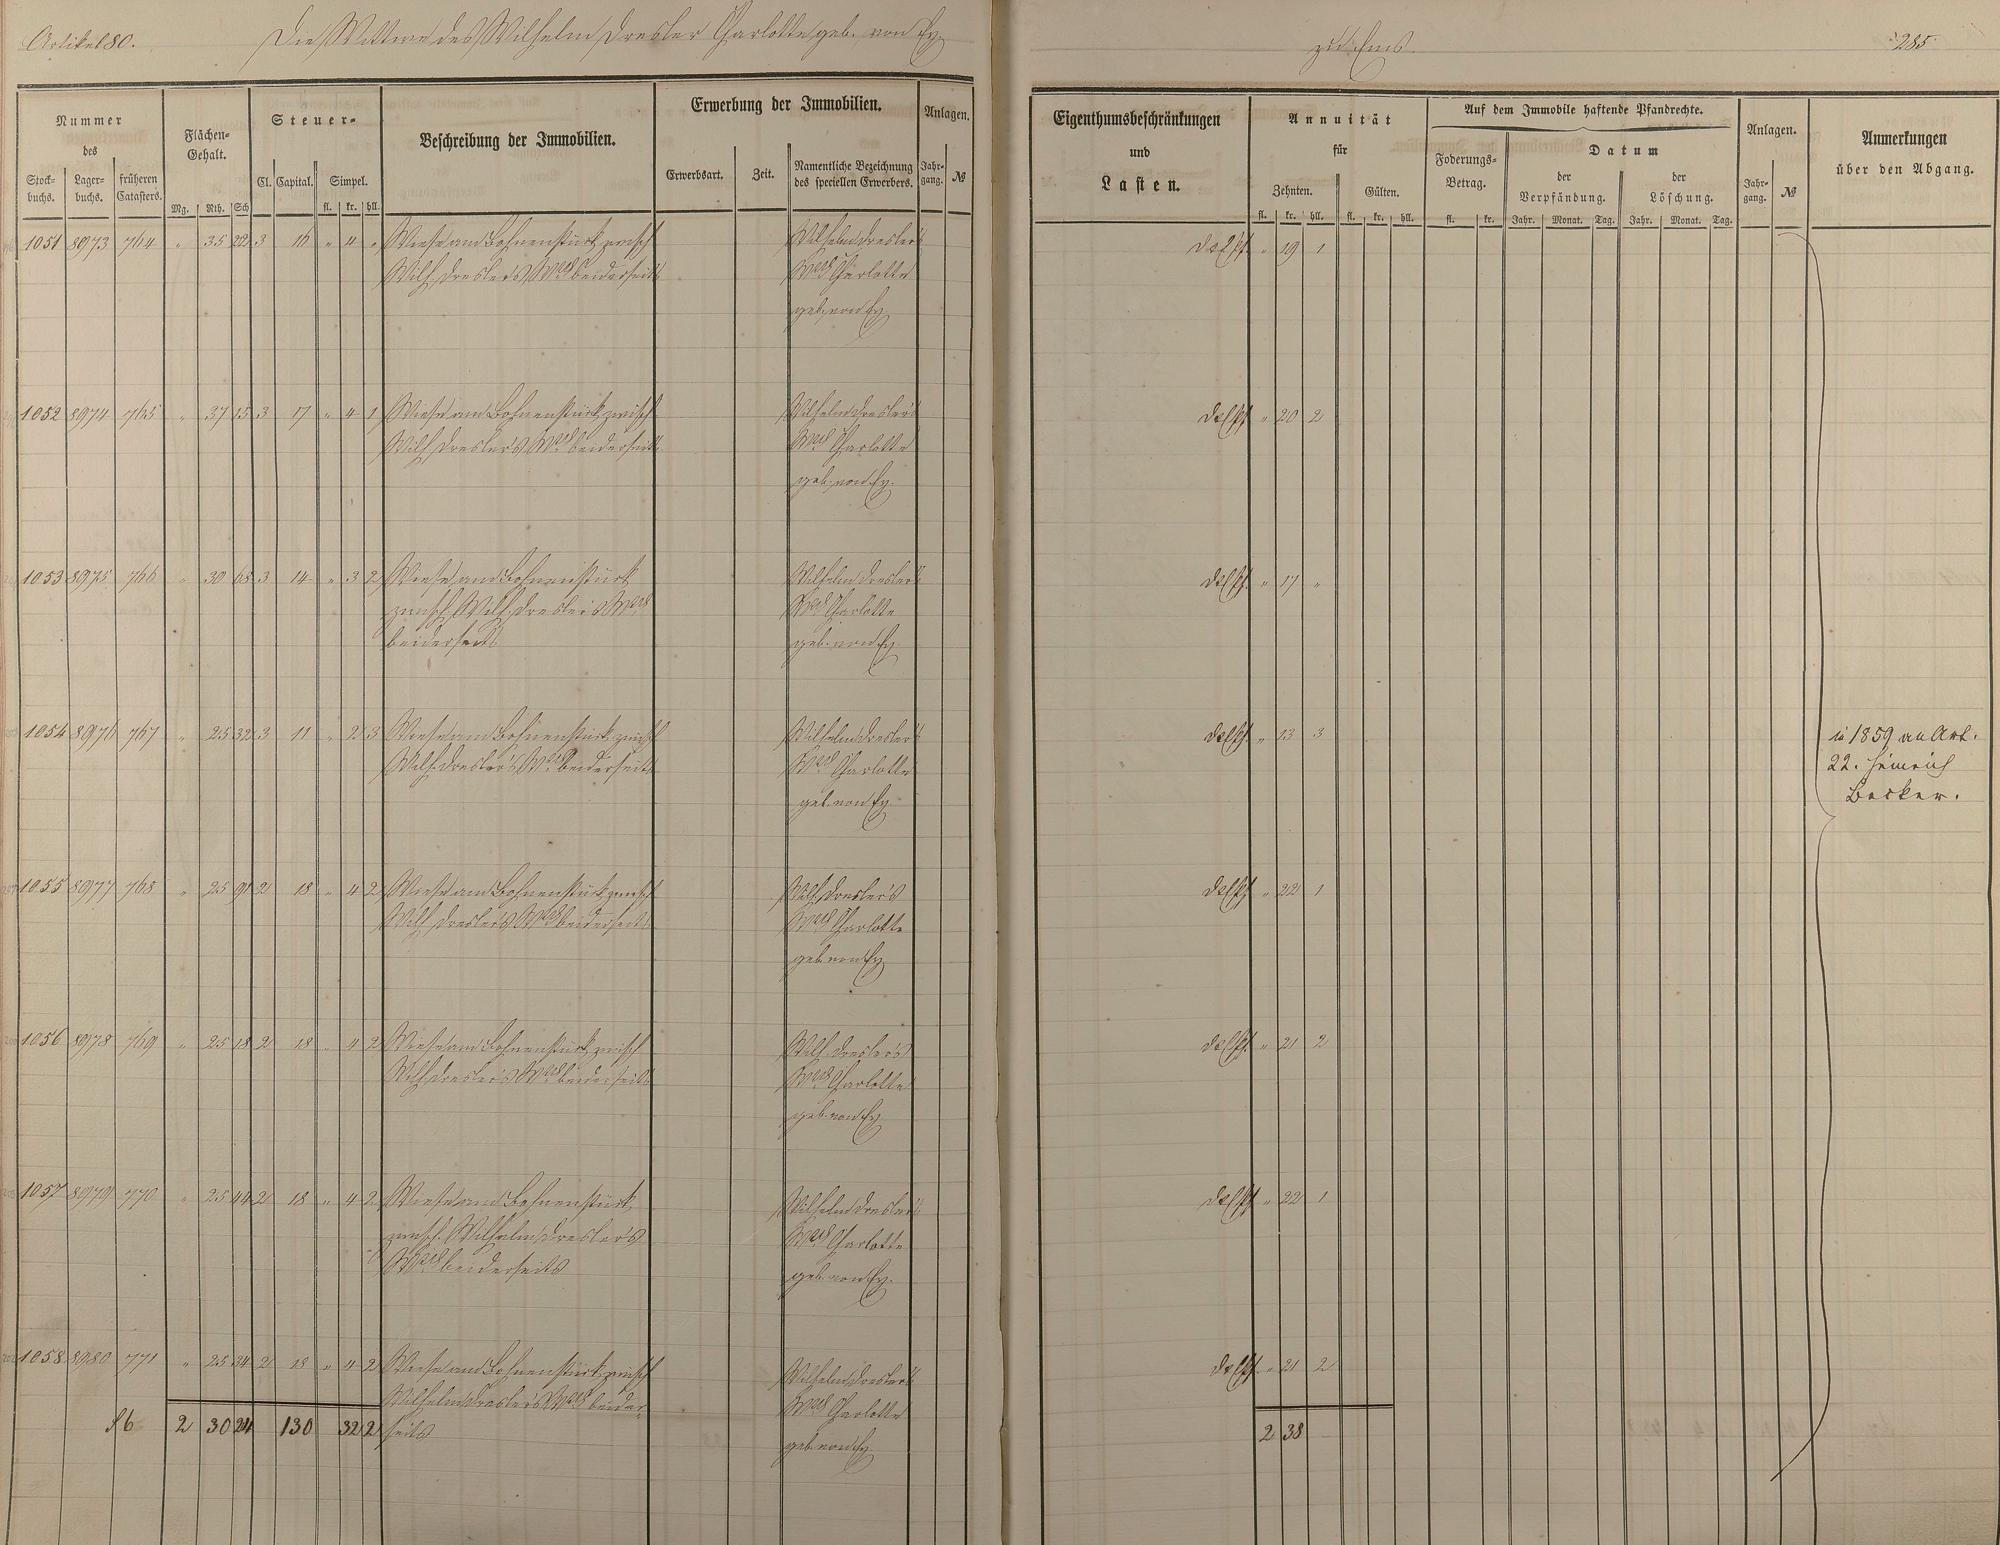 Artikel 80. Die Wittwe des Wilhelm Dresler Charlotte geb. von Ey. zu Ems. 285.
Nummer des
Stock-buchs. Lager-buchs. früheren Catasters.
Flächen-Gehalt.
Mg. Rth. Sch
Steuer-
Cl. Capital. Simpel.
fl. kr. hll.
Beschreibung der Immobilien.
Erwerbung der Immobilien.
Erwerbsart. Zeit. Namentliche Bezeichnung des speciellen Erwerbers.
Anlagen.
Jahr-gang. №
Eigenthumsbeschränkungen
und
Lasten.
Annuität
für
Zehnten. Gülten.
fl. kr. hll. fl. kr. hll.
Auf dem Immobile haftende Pfandrechte.
Foderungs-Betrag.
fl. kr.
Datum
der Verpfändung. der Löschung.
Jahr. Monat. Tag. Jahr. Monat. Tag.
Anlagen.
Jahr-gang. №
Anmerkungen
über den Abgang.
1051 8973 764 " 35 22 3 16 " 4 " Wiese am Bohnenstück zwisch Wilhelm Dresler's " 19 1
Wilh. Dresler's Wwe beiderseits Wwe Charlotte
geb. von Ey
1052 8974 765 " 37 15 3 17 " 4 1 Wiese am Bohnenstück zwisch Wilhelm Dresler's " 20 2
Wilh. Dresler's Wwe beiderseits Wwe Charlotte
geb. von Ey.
1053 8975 766 " 30 68 3 14 " 3 2 Wiese am Bohnenstück Wilhelm Dresler's " 17 "
zwisch. Wilh. Dresler's Wwe Wwe Charlotte
beiderseits geb. von Ey.
1054 8976 767 " 25 32 3 11 " 2 3 Wiese am Bohnenstück zwisch Wilhelm Dresler's " 13 3
Wilh. Dresler's Wwe beiderseits Wwe Charlotte
geb. von Ey
in 1859 an Art.
22. Heinrich
Becker.
1055 8977 768 " 25 91 2 18 " 4 2 Wiese am Bohnenstück zwisch Wilh. Dresler's " 22 1
Wilh. Dresler's Wwe beiderseits Wwe Charlotte
geb. von Ey
1056 8978 769 " 25 18 2 18 " 4 2 Wiese am Bohnenstück zwisch Wilh. Dresler's " 21 2
Wilh. Dresler's Wwe beiderseits Wwe Charlotte
geb. von Ey
1057 8979 770 " 25 44 2 18 " 4 2 Wiese am Bohnenstück Wilhelm Dresler's " 22 1
zwisch. Wilhelm Dresler's Wwe Charlotte
Wwe beiderseits geb. von Ey.
1058 8980 771 " 25 34 2 18 " 4 2 Wiese am Bohnenstück zwisch Wilhelm Dresler's " 21 2
Wilhelm Dresler's Wwe beider- Wwe Charlotte
2 30 24 130 32 2 seits geb. von Ey 2 38